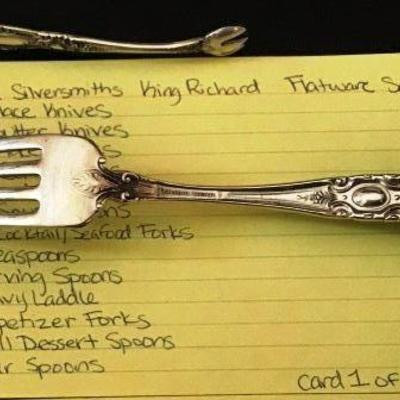 Silversmiths King Richard Flatware S
lace Knives
utter Knives
s
ns
ocktail/Seafood Forks
easpoons
rving Spoons
avy Laddle
petizer Forks
ll Dessert Spoons
ar Spoons
Card 1 of